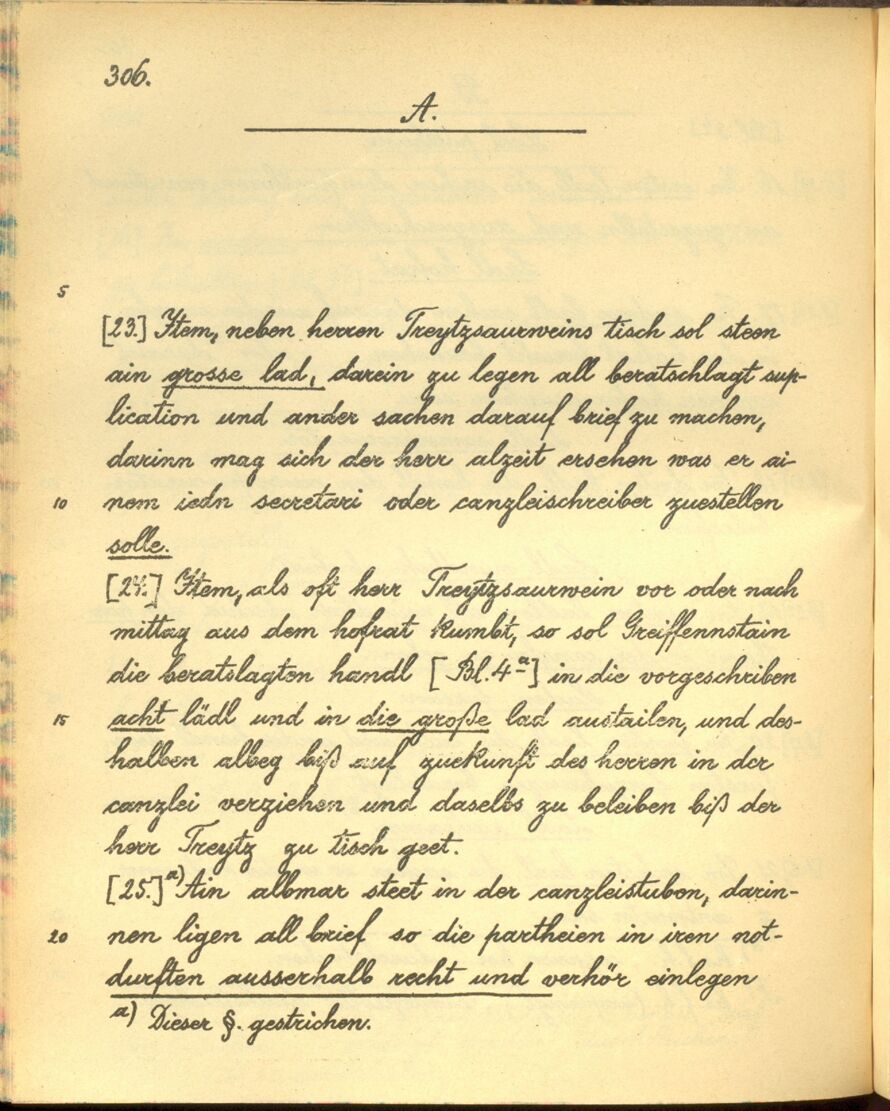 306.
A.
5
[23.] Item, neben herren Treytzsaurweins tisch sol steen
ain grosse lad, darein zu legen all beratschlagt sup-
lication und ander sachen darauf brief zu machen,
darinn mag sich der herr alzeit ersehen was er ai-
10 nem iedn secretari oder canzleischreiber zuestellen
solle.
[24.] Item, als oft herr Treytzsaurwein vor oder nach
mittag aus dem hofrat kumbt, so sol Greiffennstain
die beratslagten handl [Bl. 4a] in die vorgeschriben
15 acht lädl und in die große lad austailen, und des-
halben albeg biß auf zuekunft des herren in der
canzlei verziehen und daselbs zu beleiben biß der
herr Treytz zu tisch geet.
[25.] a) Ain albmar steet in der canzleistuben, darin-
20 nen ligen all brief so die partheien in iren not-
durften ausserhalb recht und verhör einlegen
a) Dieser §. gestrichen.